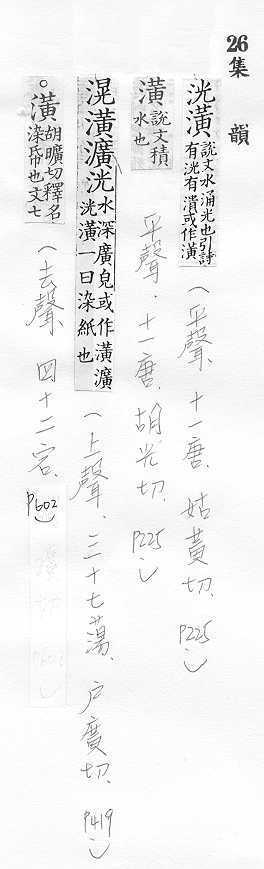 26
集韻
洸潢 說文水涌光也引詩有洸有潰或作潢(平聲、十一唐、姑黃切、P225)
潢 說文積水也 平聲、十一唐、胡光切、P225)
滉潢㶇洸 水深廣皃或作潢㶇洸潢一曰染紙也(上聲、三十七蕩、戶廣切、P419)
○潢 胡曠切釋名染帋也文七(去聲、四十二宕、P602)